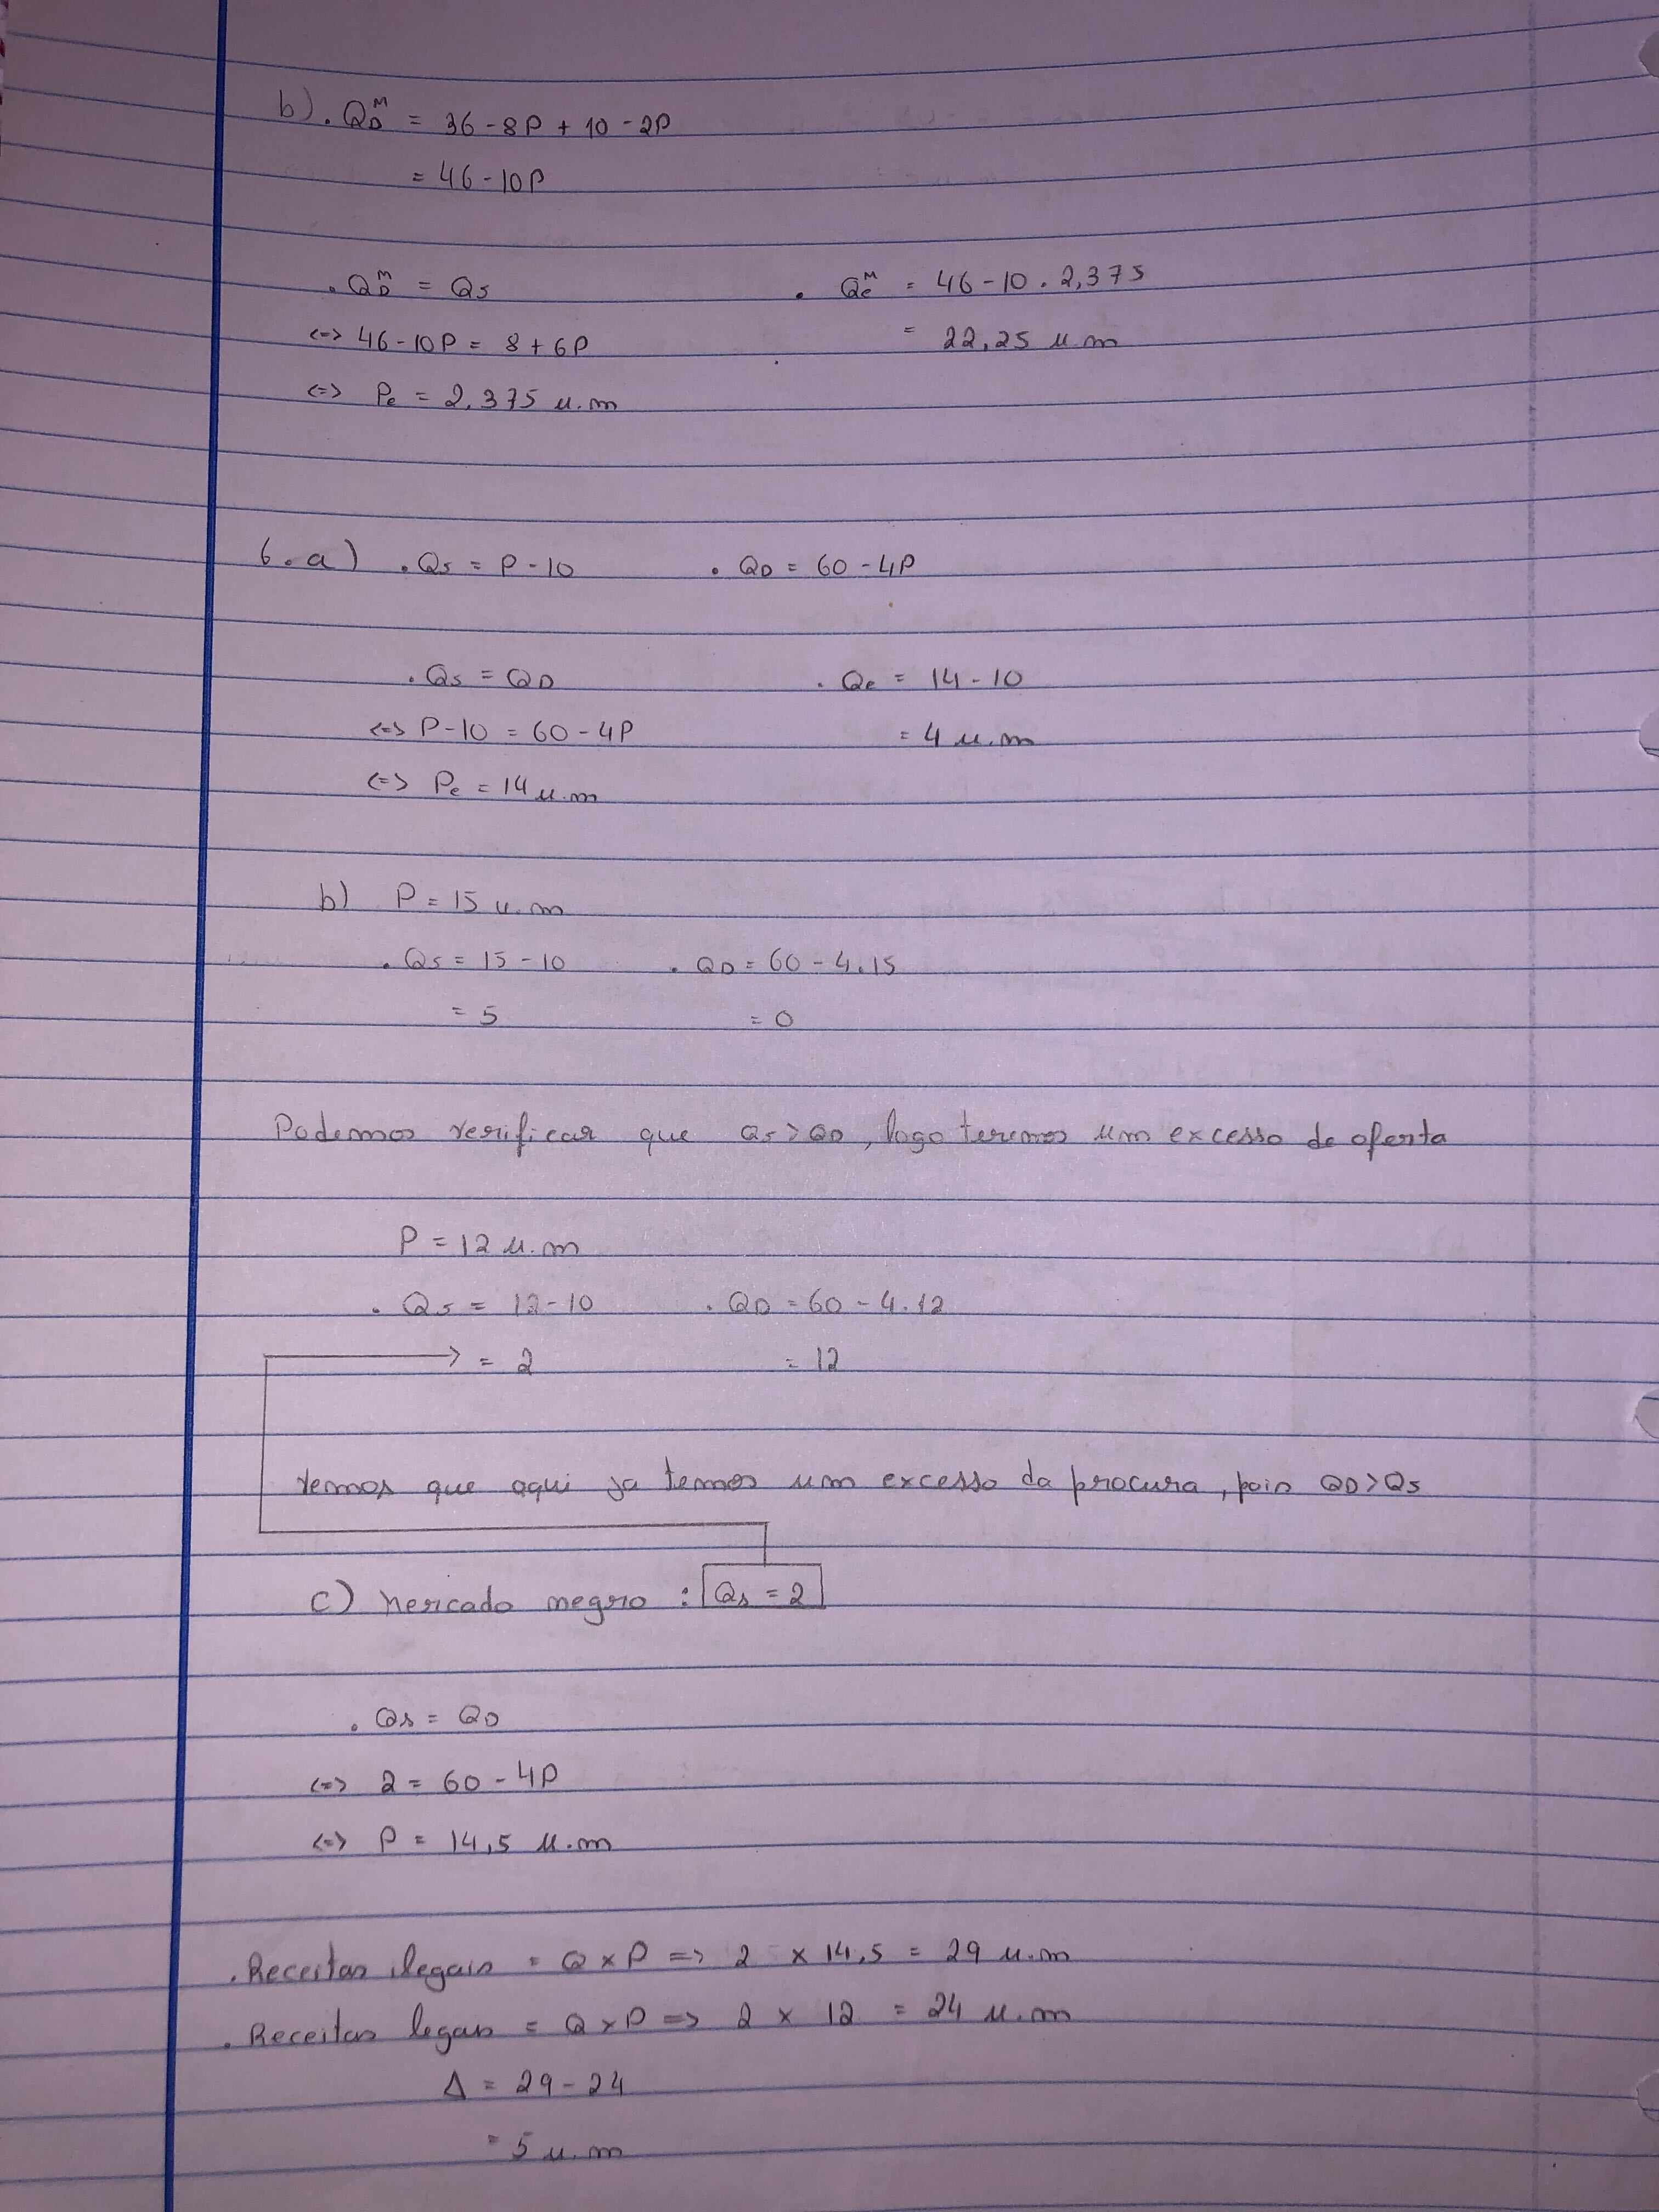 b) . Q_D^M = 36 - 8P + 10 - 2P
= 46 - 10P
. Q_D^M = Qs . Q_e^M = 46 - 10 . 2,375
<=> 46 - 10P = 8 + 6P = 22,25 u.m
<=> Pe = 2,375 u.m
6. a) . Qs = P - 10 . QD = 60 - 4P
. Qs = QD . Qe = 14 - 10
<=> P - 10 = 60 - 4P = 4 u.m
<=> Pe = 14 u.m
b) P = 15 u.m
. Qs = 15 - 10 . QD = 60 - 4.15
= 5 = 0
Podemos verificar que Qs > QD, logo teremos um excesso de oferta
P = 12 u.m
. Qs = 12 - 10 . QD = 60 - 4.12
→ = 2 = 12
Vemos que aqui ja temos um excesso da procura, pois QD > Qs
c) Mercado negro : Qs = 2
. Qs = QD
<=> 2 = 60 - 4P
<=> P = 14,5 u.m
. Receitas ilegais = Q x P => 2 x 14,5 = 29 u.m
. Receitas legais = Q x P => 2 x 12 = 24 u.m
Δ = 29 - 24
= 5 u.m